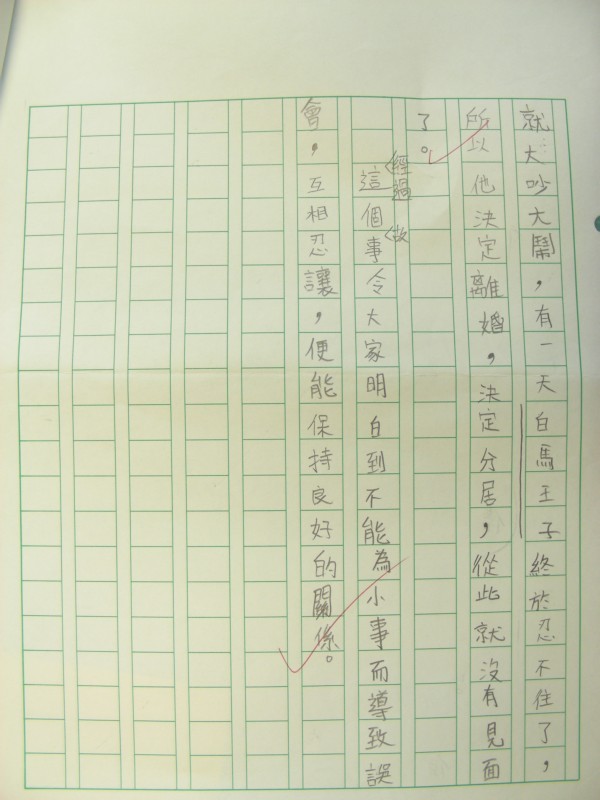 就大吵大鬧，有一天白馬王子終於忍不住了，
所以他決定離婚，決定分居，從此就沒有見面
了。
經過
故
這個事令大家明白到不能為小事而導致誤
會，互相忍讓，便能保持良好的關係。